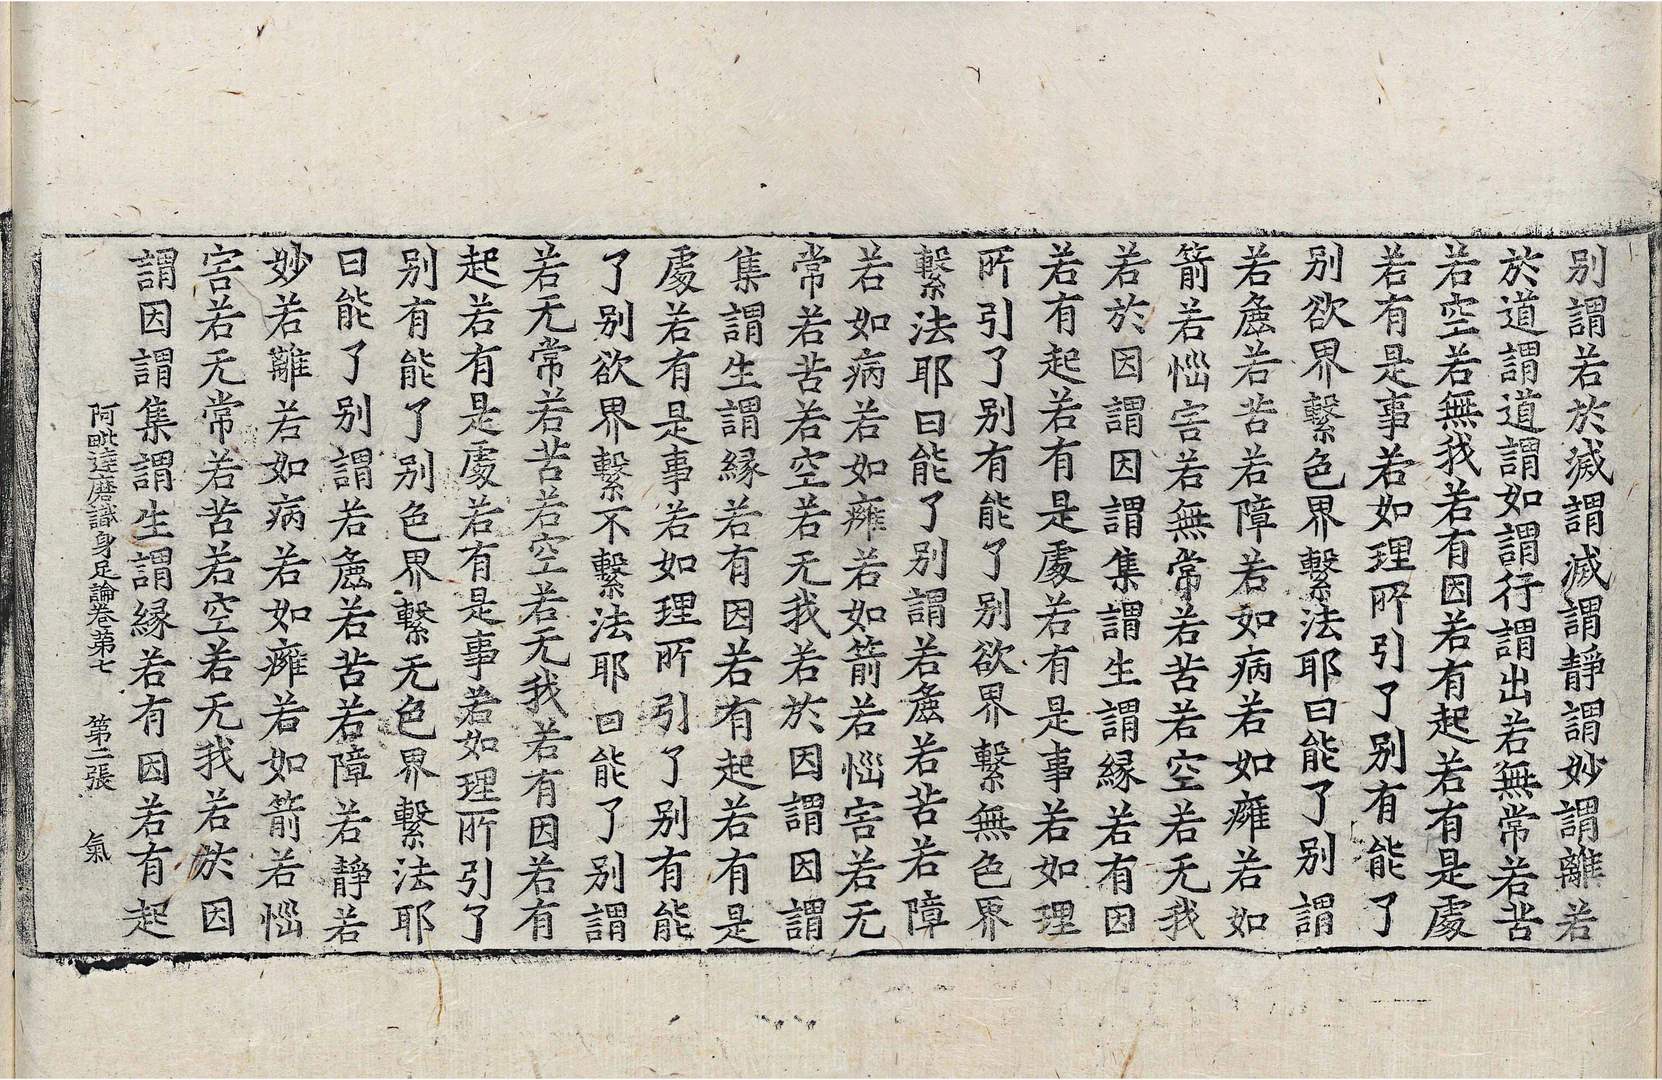 別謂若於滅謂滅謂靜謂妙謂離若
於道謂道謂如謂行謂出若無常若苦
若空若無我若有因若有起若有是處
若有是事若如理所引了別有能了
別欲界繫色界繫法耶曰能了別謂
若麁若苦若障若如病若如癰若如
箭若惱害若無常若苦若空若无我
若於因謂因謂集謂生謂縁若有因
若有起若有是處若有是事若如理
所引了別有能了別欲界繫無色界
繫法耶曰能了別謂若麁若苦若障
若如病若如癰若如箭若惱害若无
常若苦若空若无我若於因謂因謂
集謂生謂縁若有因若有起若有是
處若有是事若如理所引了別有能
了別欲界繫不繫法耶曰能了別謂
若无常若苦若空若无我若有因若有
起若有是處若有是事若如理所引了
別有能了別色界繫无色界繫法耶
曰能了別謂若麁若苦若障若靜若
妙若離若如病若如癰若如箭若惱
害若无常若苦若空若无我若於因
謂因謂集謂生謂縁若有因若有起
阿毗達磨識身足論卷第七 第二張 氣